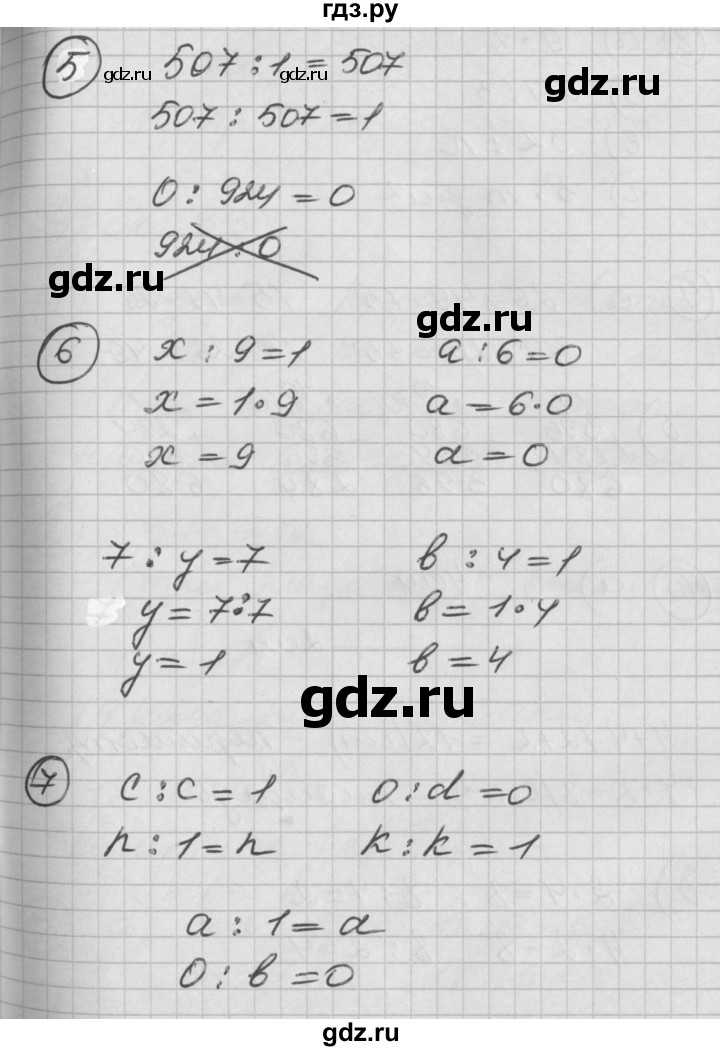 гдз.ру
5 507 : 1 = 507
gdz.ru gdz.ru
gdz.ru
507 : 507 = 1
0 : 924 = 0
924 : 0
gdz.ru
gdz.ru
6 x : 9 = 1 a : 6 = 0
x = 1 · 9 a = 6 · 0
x = 9 a = 0
7 : y = 7 в : 4 = 1
y = 7 : 7 в = 1 · 4
y = 1 в = 4
gdz.ru
7 c : c = 1 0 : d = 0
n : 1 = n k : k = 1
a : 1 = a
0 : в = 0
gdz.ru